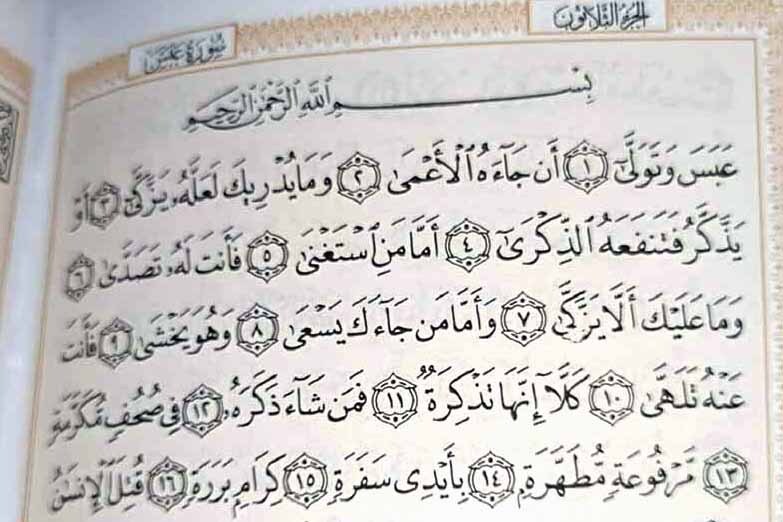 الجزء الثلاثون
سورة عبس
بِسْمِ ٱللَّهِ ٱلرَّحْمَٰنِ ٱلرَّحِيمِ
عَبَسَ وَتَوَلَّىٰٓ ١ أَن جَآءَهُ ٱلْأَعْمَىٰ ٢ وَمَا يُدْرِيكَ لَعَلَّهُۥ يَزَّكَّىٰٓ ٣ أَوْ
يَذَّكَّرُ فَتَنفَعَهُ ٱلذِّكْرَىٰٓ ٤ أَمَّا مَنِ ٱسْتَغْنَىٰ ٥ فَأَنتَ لَهُۥ تَصَدَّىٰ ٦
وَمَا عَلَيْكَ أَلَّا يَزَّكَّىٰ ٧ وَأَمَّا مَن جَآءَكَ يَسْعَىٰ ٨ وَهُوَ يَخْشَىٰ ٩ فَأَنتَ
عَنْهُ تَلَهَّىٰ ١٠ كَلَّآ إِنَّهَا تَذْكِرَةٌ ١١ فَمَن شَآءَ ذَكَرَهُۥ ١٢ فِى صُحُفٍ مُّكَرَّمَةٍ
١٣ مَّرْفُوعَةٍ مُّطَهَّرَةٍۭ ١٤ بِأَيْدِى سَفَرَةٍ ١٥ كِرَامٍۭ بَرَرَةٍ ١٦ قُتِلَ ٱلْإِنسَٰنُ